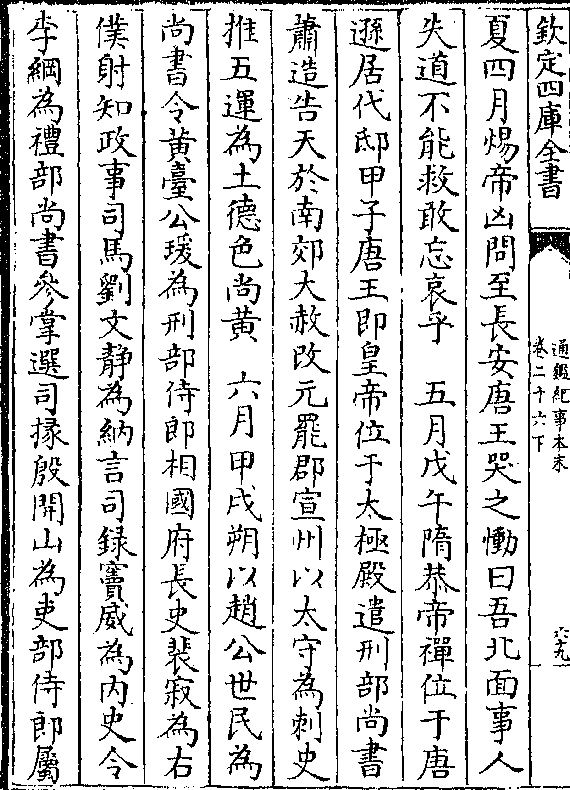 欽定四庫全書
通鑑紀事本末
卷二十六下
六十九
夏四月煬帝凶問至長安唐王哭之慟曰吾北面事人
失道不能救敢忘哀乎　五月戊午隋恭帝禪位于唐
遜居代邸甲子唐王即皇帝位于太極殿遣刑部尚書
蕭造告天於南郊大赦改元罷郡宣州以太守為刺史
推五運為土德色尚黃　六月甲戌朔以趙公世民為
尚書令黃臺公瑗為刑部侍郎相國府長史裴寂為右
僕射知政事司馬劉文靜為納言司録竇威為内史令
李綱為禮部尚書參掌選司掾殷開山為吏部侍郎屬